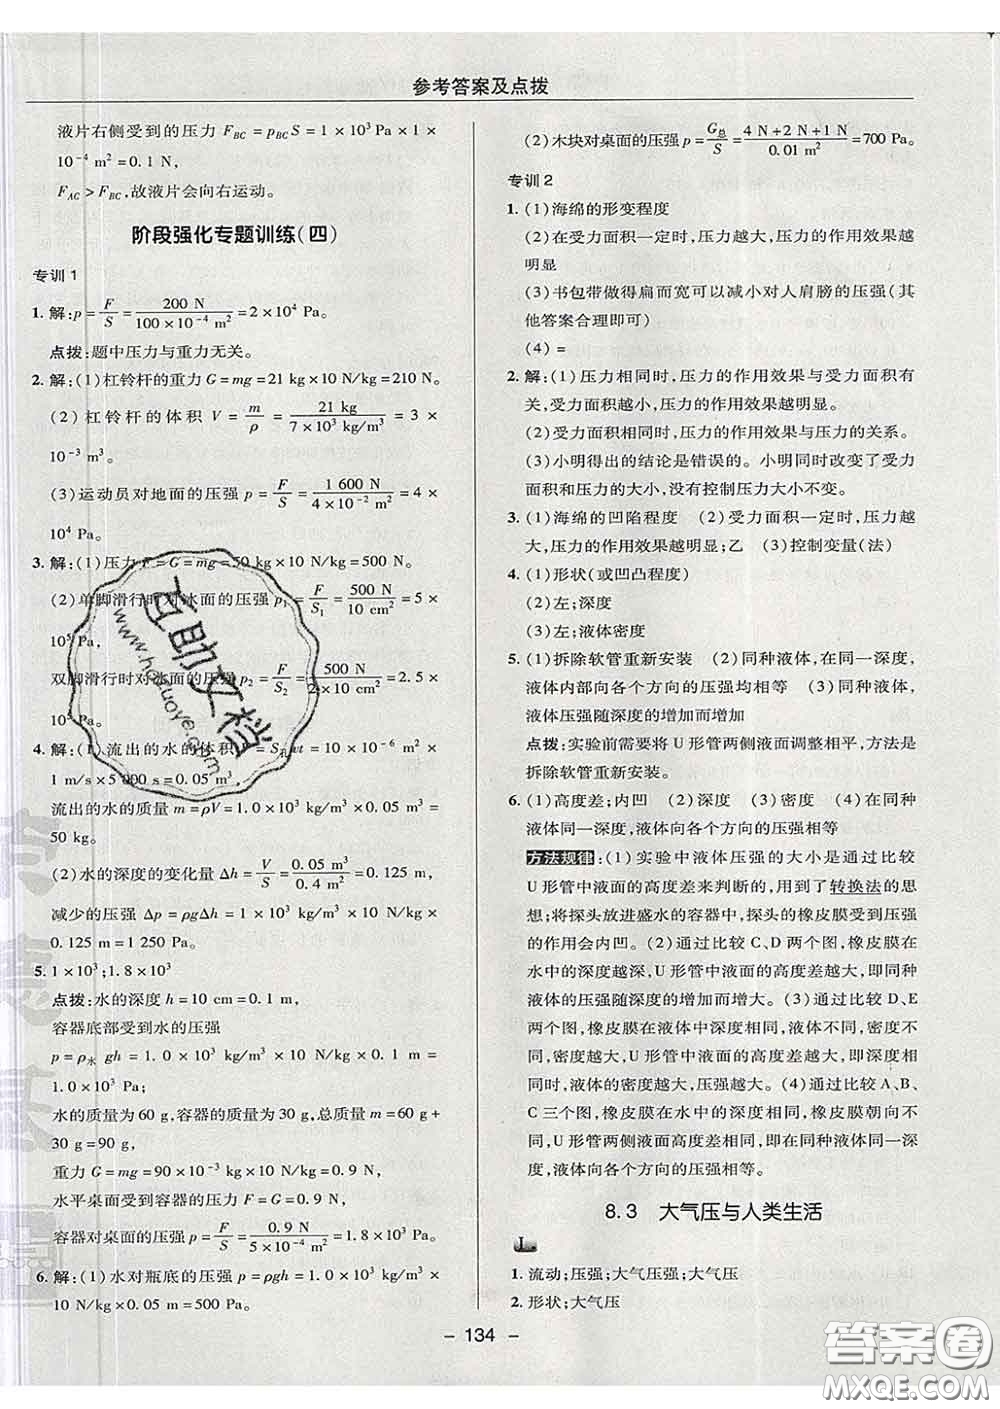 参考答案及点拨
液片右侧受到的压力 F_BC = p_BC S = 1 × 10³ Pa × 1 ×
10⁻⁴ m² = 0.1 N，
F_AC > F_BC，故液片会向右运动。
阶段强化专题训练（四）
专训 1
1. 解：p = F/S = 200 N/(100 × 10⁻⁴ m²) = 2 × 10⁴ Pa。
点拨：题中压力与重力无关。
2. 解：(1)杠铃杆的重力 G = mg = 21 kg × 10 N/kg = 210 N。
(2) 杠铃杆的体积 V = m/ρ = 21 kg/(7 × 10³ kg/m³) = 3 ×
10⁻³ m³。
(3)运动员对地面的压强 p = F/S = 1 600 N/(4 × 10⁻² m²) = 4 ×
10⁴ Pa。
3. 解：(1)压力 F = G = mg = 50 kg × 10 N/kg = 500 N。
(2)单脚滑行时对冰面的压强 p₁ = F/S₁ = 500 N/10 cm² = 5 ×
10⁵ Pa，
双脚滑行时对冰面的压强 p₂ = F/S₂ = 500 N/(2 × 10 cm²) = 2.5 ×
4. 解：(1)流出的水的体积 V = S孔vt = 10 × 10⁻⁶ m² ×
1 m/s × 5 000 s = 0.05 m³，
流出的水的质量 m = ρV = 1.0 × 10³ kg/m³ × 0.05 m³ =
50 kg。
(2)水的深度的变化量 Δh = V/S = 0.05 m³/0.4 m² = 0.125 m，
减少的压强 Δp = ρgΔh = 1.0 × 10³ kg/m³ × 10 N/kg ×
0.125 m = 1 250 Pa。
5. 1 × 10³；1.8 × 10³
点拨：水的深度 h = 10 cm = 0.1 m，
容器底部受到水的压强
p = ρ水 gh = 1.0 × 10³ kg/m³ × 10 N/kg × 0.1 m = 1.0 ×
10³ Pa；
水的质量为 60 g，容器的质量为 30 g，总质量 m = 60 g +
30 g = 90 g，
重力 G = mg = 90 × 10⁻³ kg × 10 N/kg = 0.9 N，
水平桌面受到容器的压力 F = G = 0.9 N，
容器对桌面的压强 p = F/S = 0.9 N/(5 × 10⁻⁴ m²) = 1.8 × 10³ Pa。
6. 解：(1)水对瓶底的压强 p = ρgh = 1.0 × 10³ kg/m³ ×
10 N/kg × 0.05 m = 500 Pa。
(2)木块对桌面的压强 p = G总/S = (4 N + 2 N + 1 N)/0.01 m² = 700 Pa。
专训 2
1. (1)海绵的形变程度
(2)在受力面积一定时，压力越大，压力的作用效果越
明显
(3)书包带做得扁而宽可以减小对人肩膀的压强(其
他答案合理即可)
(4) =
2. 解：(1)压力相同时，压力的作用效果与受力面积有
关，受力面积越小，压力的作用效果越明显。
(2)受力面积相同时，压力的作用效果与压力的关系。
(3)小明得出的结论是错误的。小明同时改变了受力
面积和压力的大小，没有控制压力大小不变。
3. (1)海绵的凹陷程度 (2)受力面积一定时，压力越
大，压力的作用效果越明显；乙 (3)控制变量(法)
4. (1)形状(或凹凸程度)
(2)左；深度
(3)左；液体密度
5. (1)拆除软管重新安装 (2)同种液体，在同一深度，
液体内部向各个方向的压强均相等 (3)同种液体，
液体压强随深度的增加而增加
点拨：实验前需要将 U 形管两侧液面调整相平，方法是
拆除软管重新安装。
6. (1)高度差；内凹 (2)深度 (3)密度 (4)在同种
液体同一深度，液体向各个方向的压强相等
方法规律：(1)实验中液体压强的大小是通过比较
U 形管中液面的高度差来判断的，用到了转换法的思
想；将探头放进盛水的容器中，探头的橡皮膜受到压强
的作用会内凹。(2)通过比较 C、D 两个图，橡皮膜在
水中的深度越深，U 形管中液面的高度差越大，即同种
液体的压强随深度的增加而增大。(3)通过比较 D、E
两个图，橡皮膜在液体中深度相同，液体不同，密度不
同，密度越大，U 形管中液面的高度差越大，即同一深
度时，液体的密度越大，压强越大。(4)通过比较 A、B、
C 三个图，橡皮膜在水中的深度相同，橡皮膜朝向不
同，U 形管两侧液面高度差相同，即在同种液体同一深
度，液体向各个方向的压强相等。
8.3 大气压与人类生活
1. 流动；压强；大气压强；大气压
2. 形状；大气压
– 134 –
互助文档
www.hezuoye.com
答案圈
MXQE.COM